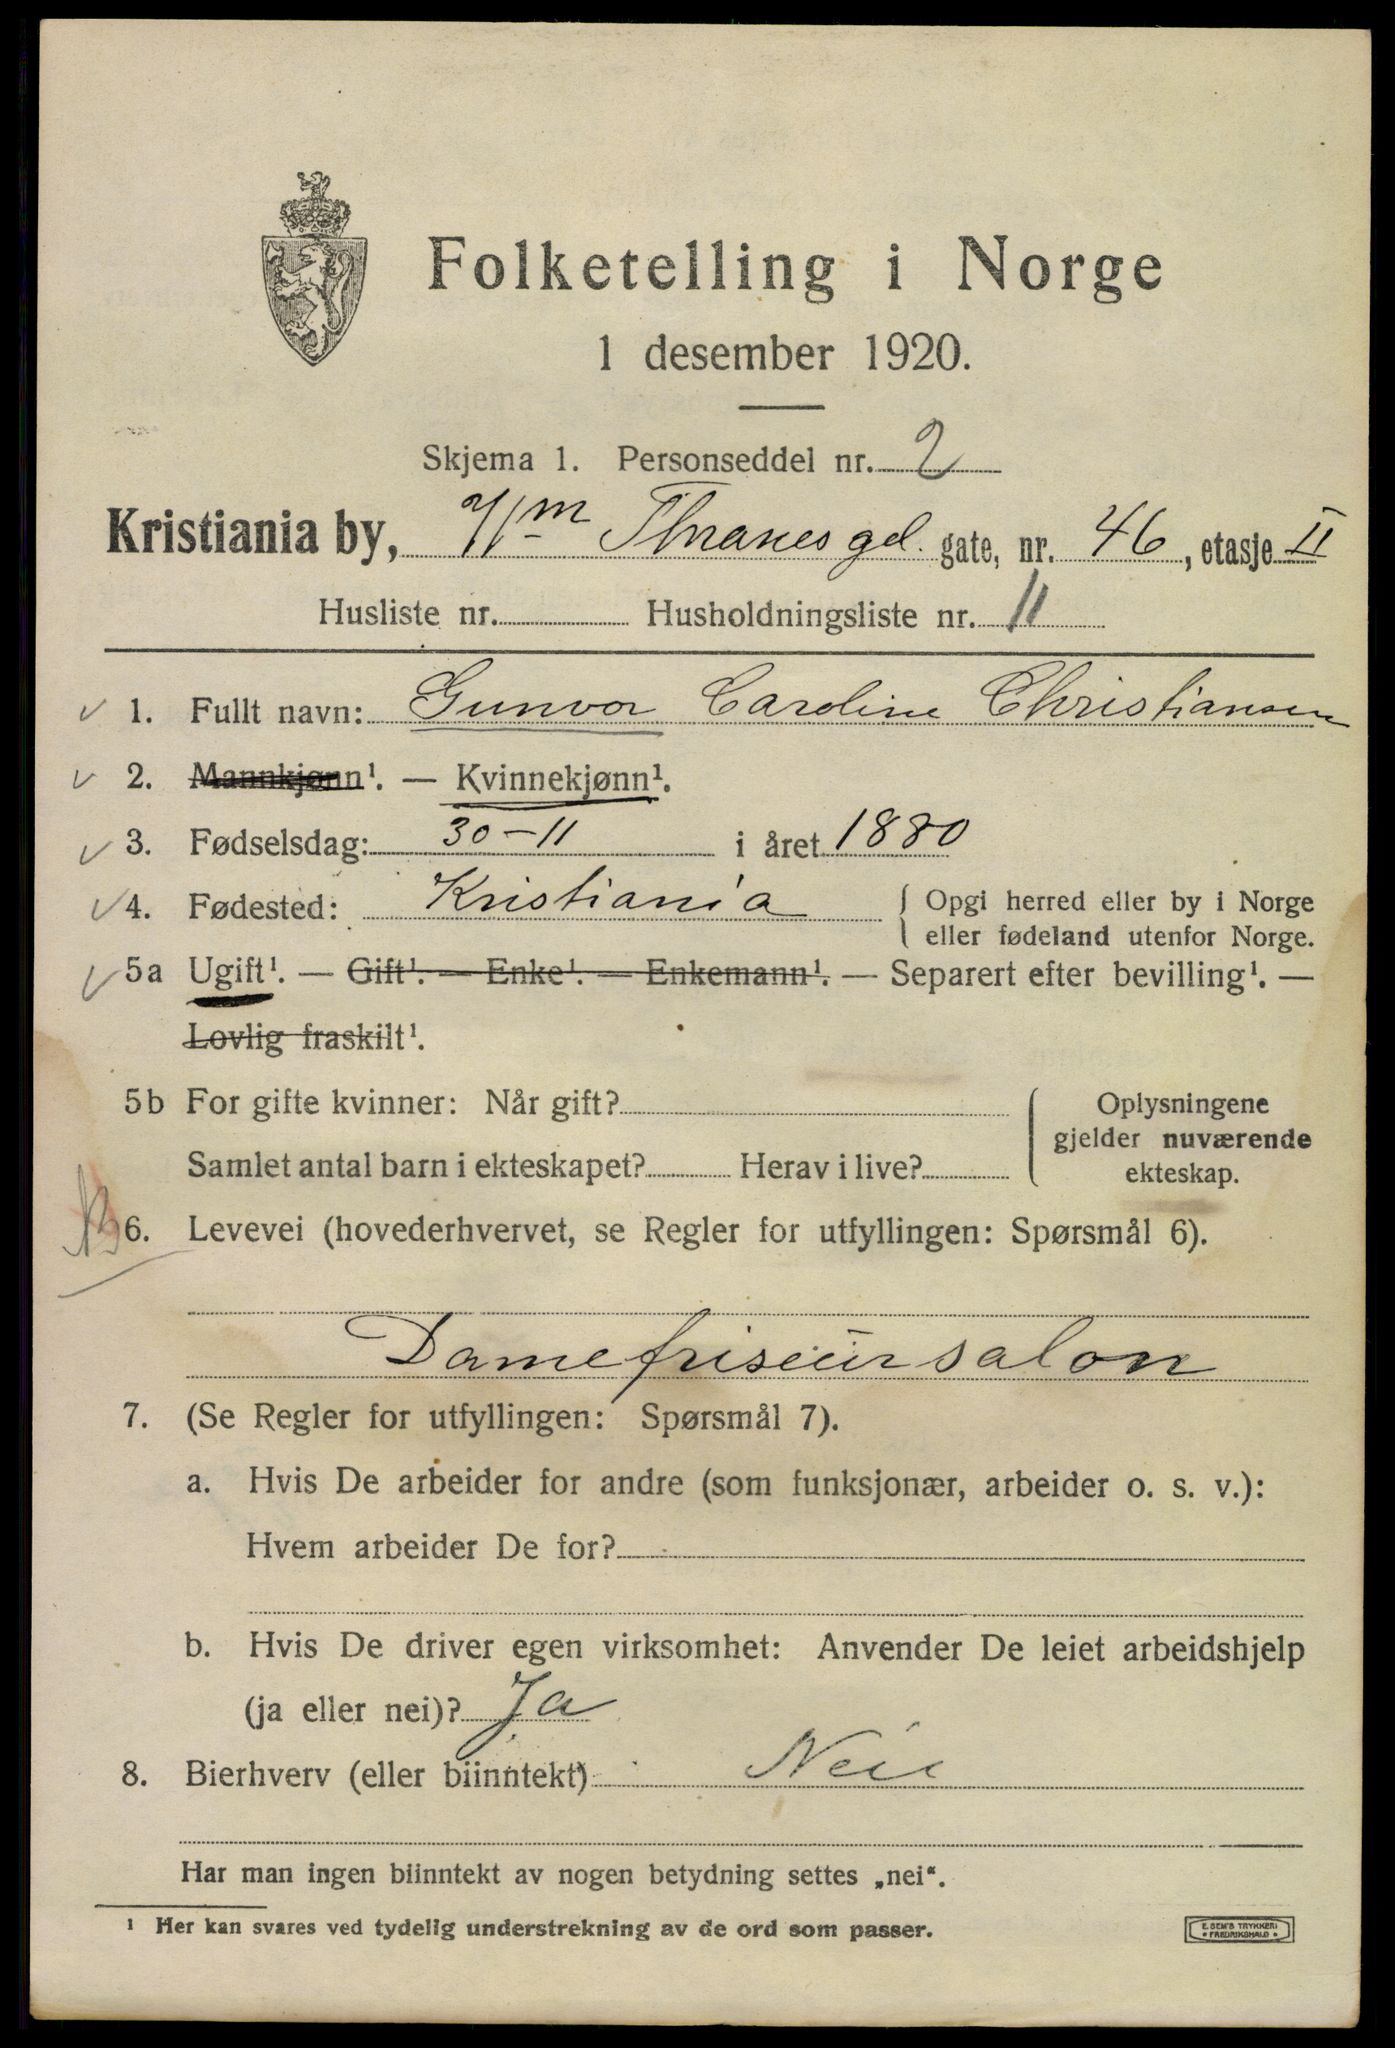 Folketelling i Norge
1 desember 1920.
Skjema 1. Personseddel nr. 2
Kristiania by, Wm Thranes gd. gate, nr. 46, etasje II
Husliste nr. Husholdningsliste nr. 11
1. Fullt navn: Gunvor Caroline Christiansen
2. Mannkjønn¹. — Kvinnekjønn¹.
3. Fødselsdag: 30-11 i året 1880
4. Fødested: Kristiania { Opgi herred eller by i Norge
eller fødeland utenfor Norge.
5a Ugift¹. — Gift¹. — Enke¹. — Enkemann¹. — Separert efter bevilling¹. —
Lovlig fraskilt¹.
5b For gifte kvinner: Når gift? { Oplysningene
gjelder nuværende
Samlet antal barn i ekteskapet? Herav i live? ekteskap.
6. Levevei (hovederhvervet, se Regler for utfyllingen: Spørsmål 6).
Damefriseursalon
7. (Se Regler for utfyllingen: Spørsmål 7).
a. Hvis De arbeider for andre (som funksjonær, arbeider o. s. v.):
Hvem arbeider De for?
b. Hvis De driver egen virksomhet: Anvender De leiet arbeidshjelp
(ja eller nei)? Ja
8. Bierhverv (eller biinntekt) Nei
Har man ingen biinntekt av nogen betydning settes „nei“.
¹ Her kan svares ved tydelig understrekning av de ord som passer.
E. SEM'S TRYKKERI
• FREDRIKSHALD •